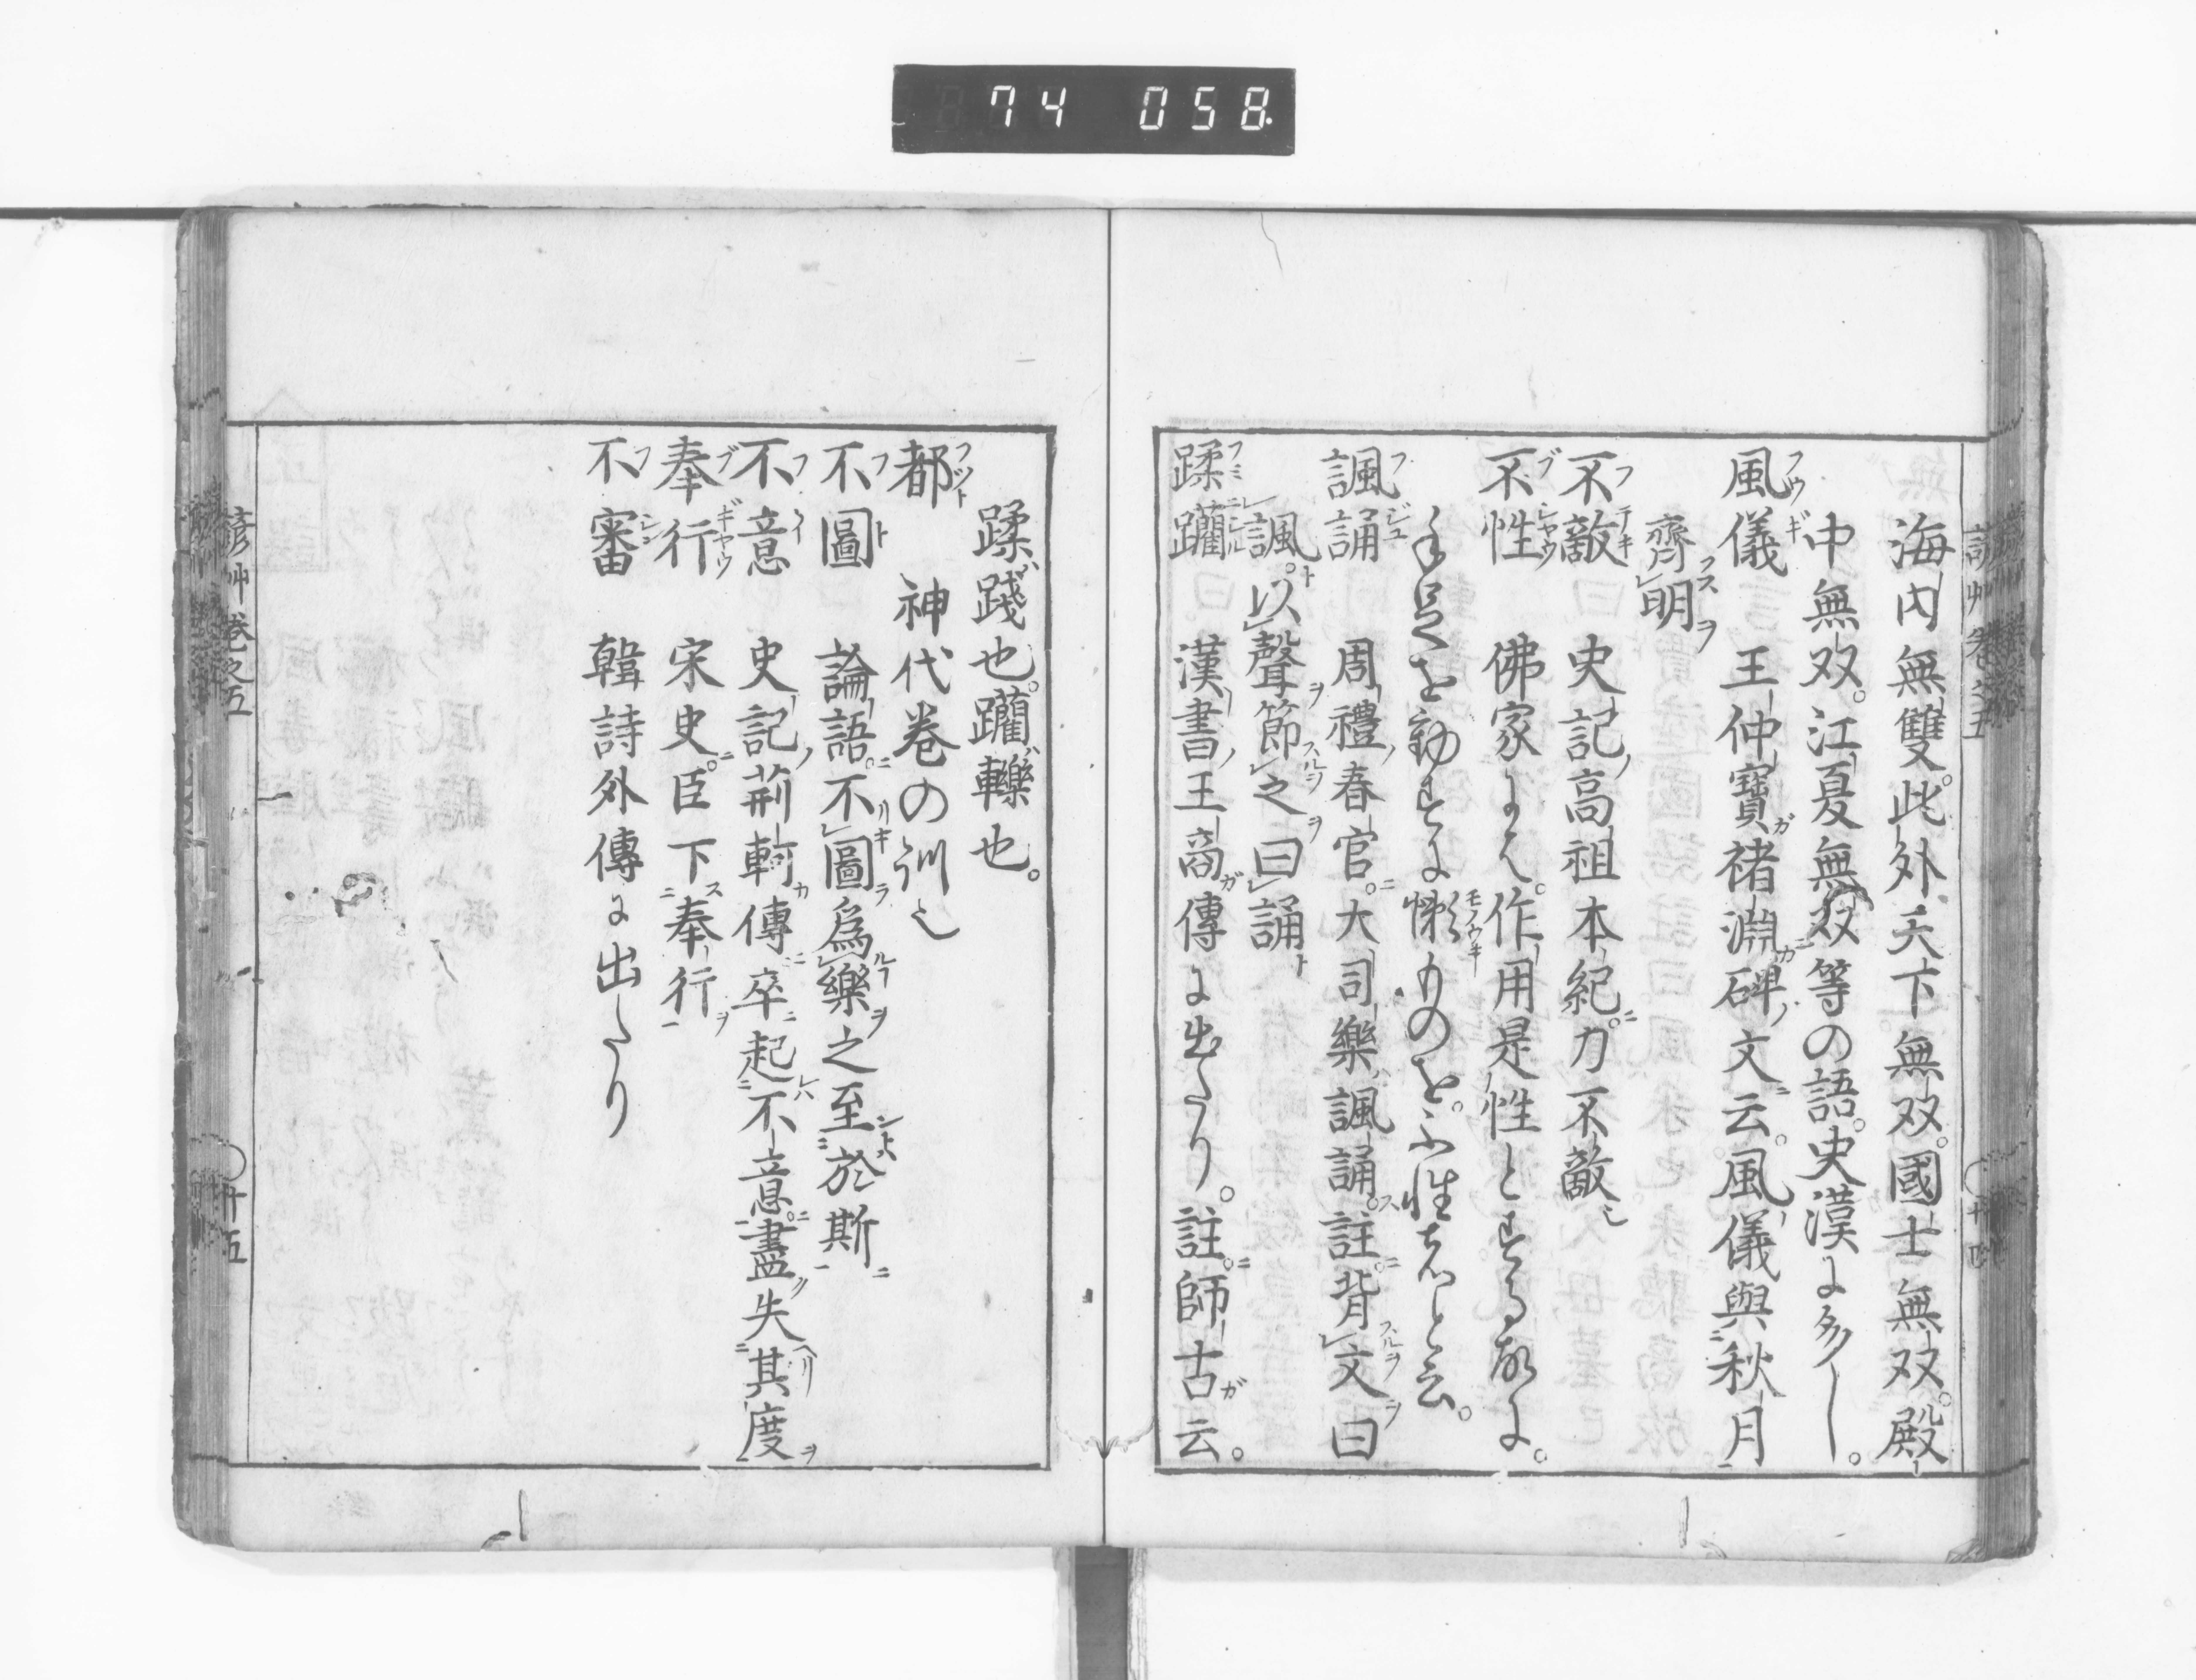 74 058
海内無雙。此外天下無双。國士無双。殿
中無双。江夏無双等の語。史漢に多し。
風儀 王仲寶褚淵碑文云。風儀與秋月
齊明
不敵 史記高祖本紀。力不敵也
不性 佛家には。作用是性とする故に。
手足を動すに懶ものを。不性者と云。
諷誦 周禮春官。大司樂諷誦。註。背文曰
諷。以聲節之曰誦
蹂躪 漢書王商傳に出たり。註。師古云。
蹂踐也。躪轢也。
都 神代巻の訓也
不圖 論語。不圖爲樂之至於斯
不意 史記荊軻傳卒起不意。盡失其度
奉行 宋史。臣下奉行
不審 韓詩外傳に出たり
諺艸巻之五 十五